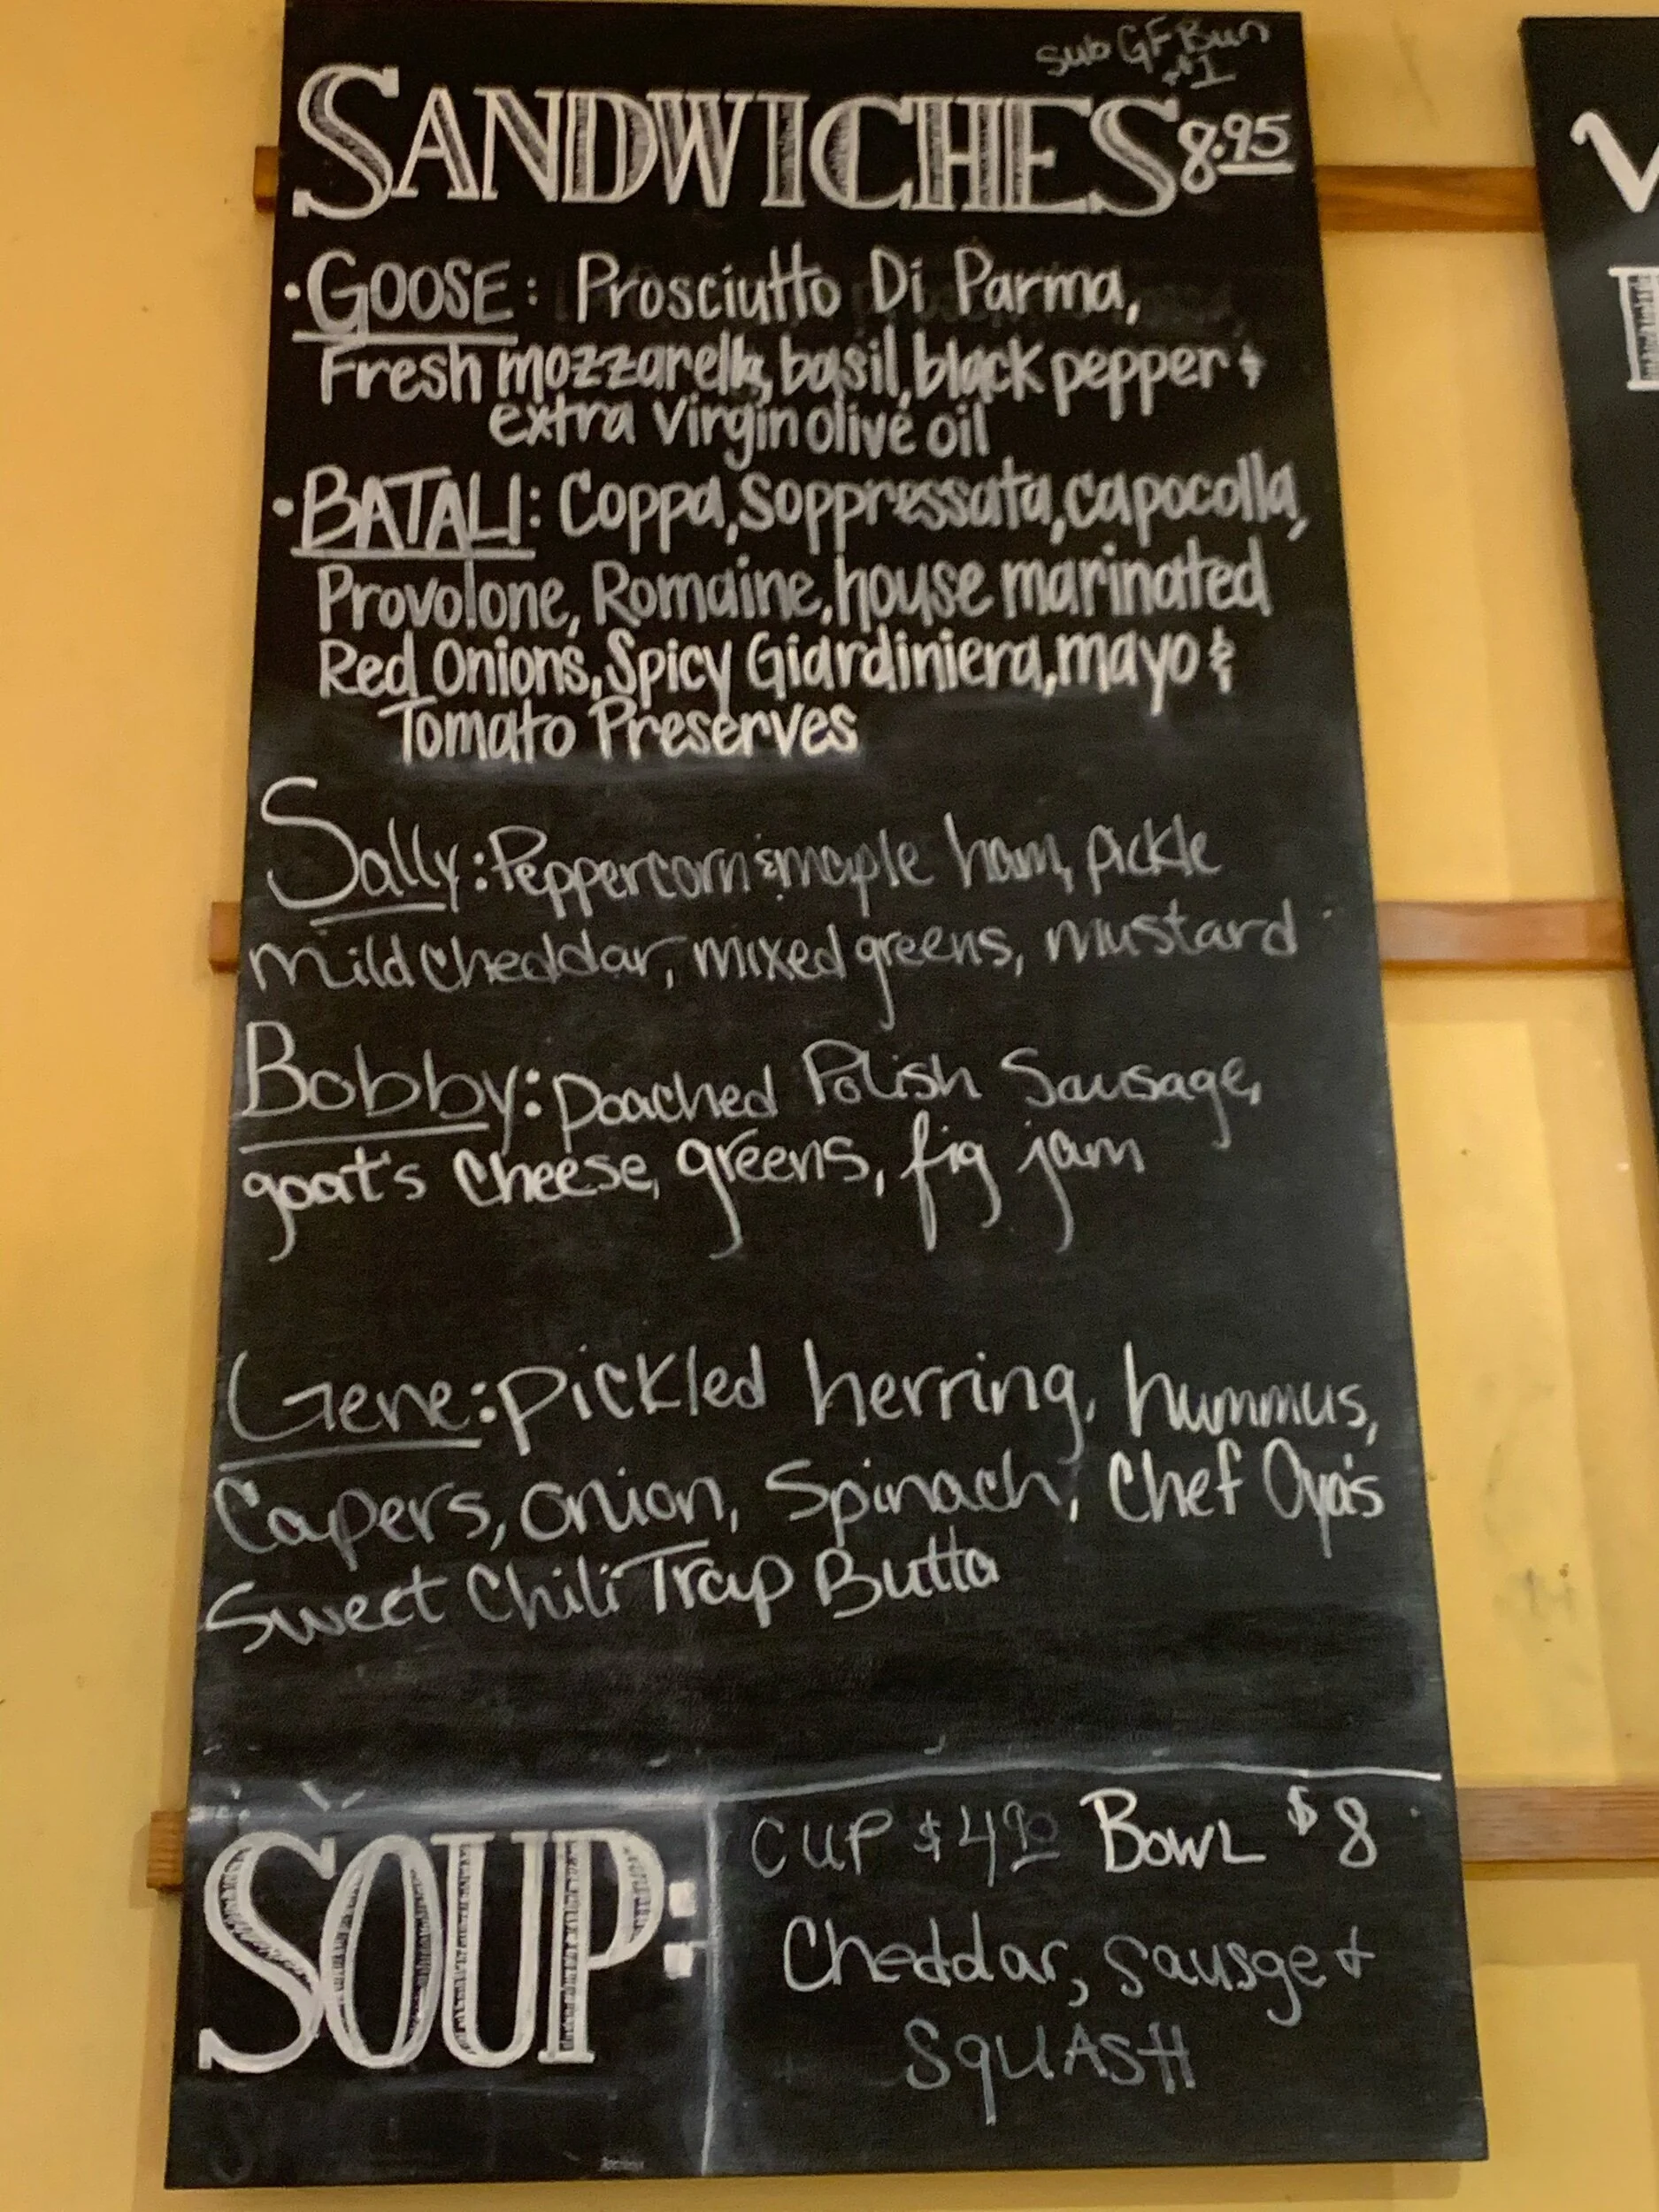 sub GF Bun
+$1
SANDWICHES 8.95
• GOOSE: Prosciutto Di Parma,
Fresh mozzarella, basil, black pepper &
extra virgin olive oil
• BATALI: Coppa, Soppressata, capocolla,
Provolone, Romaine, house marinated
Red Onions, Spicy Giardiniera, mayo &
Tomato Preserves
Sally: Peppercorn & maple ham, pickle
mild cheddar, mixed greens, mustard
Bobby: Poached Polish Sausage,
goat's cheese, greens, fig jam
Gene: pickled herring, hummus,
Capers, onion, Spinach, Chef Oya's
Sweet Chili Trap Butta
SOUP:
CUP $4.90 BOWL $8
Cheddar, Sausge &
SquASH